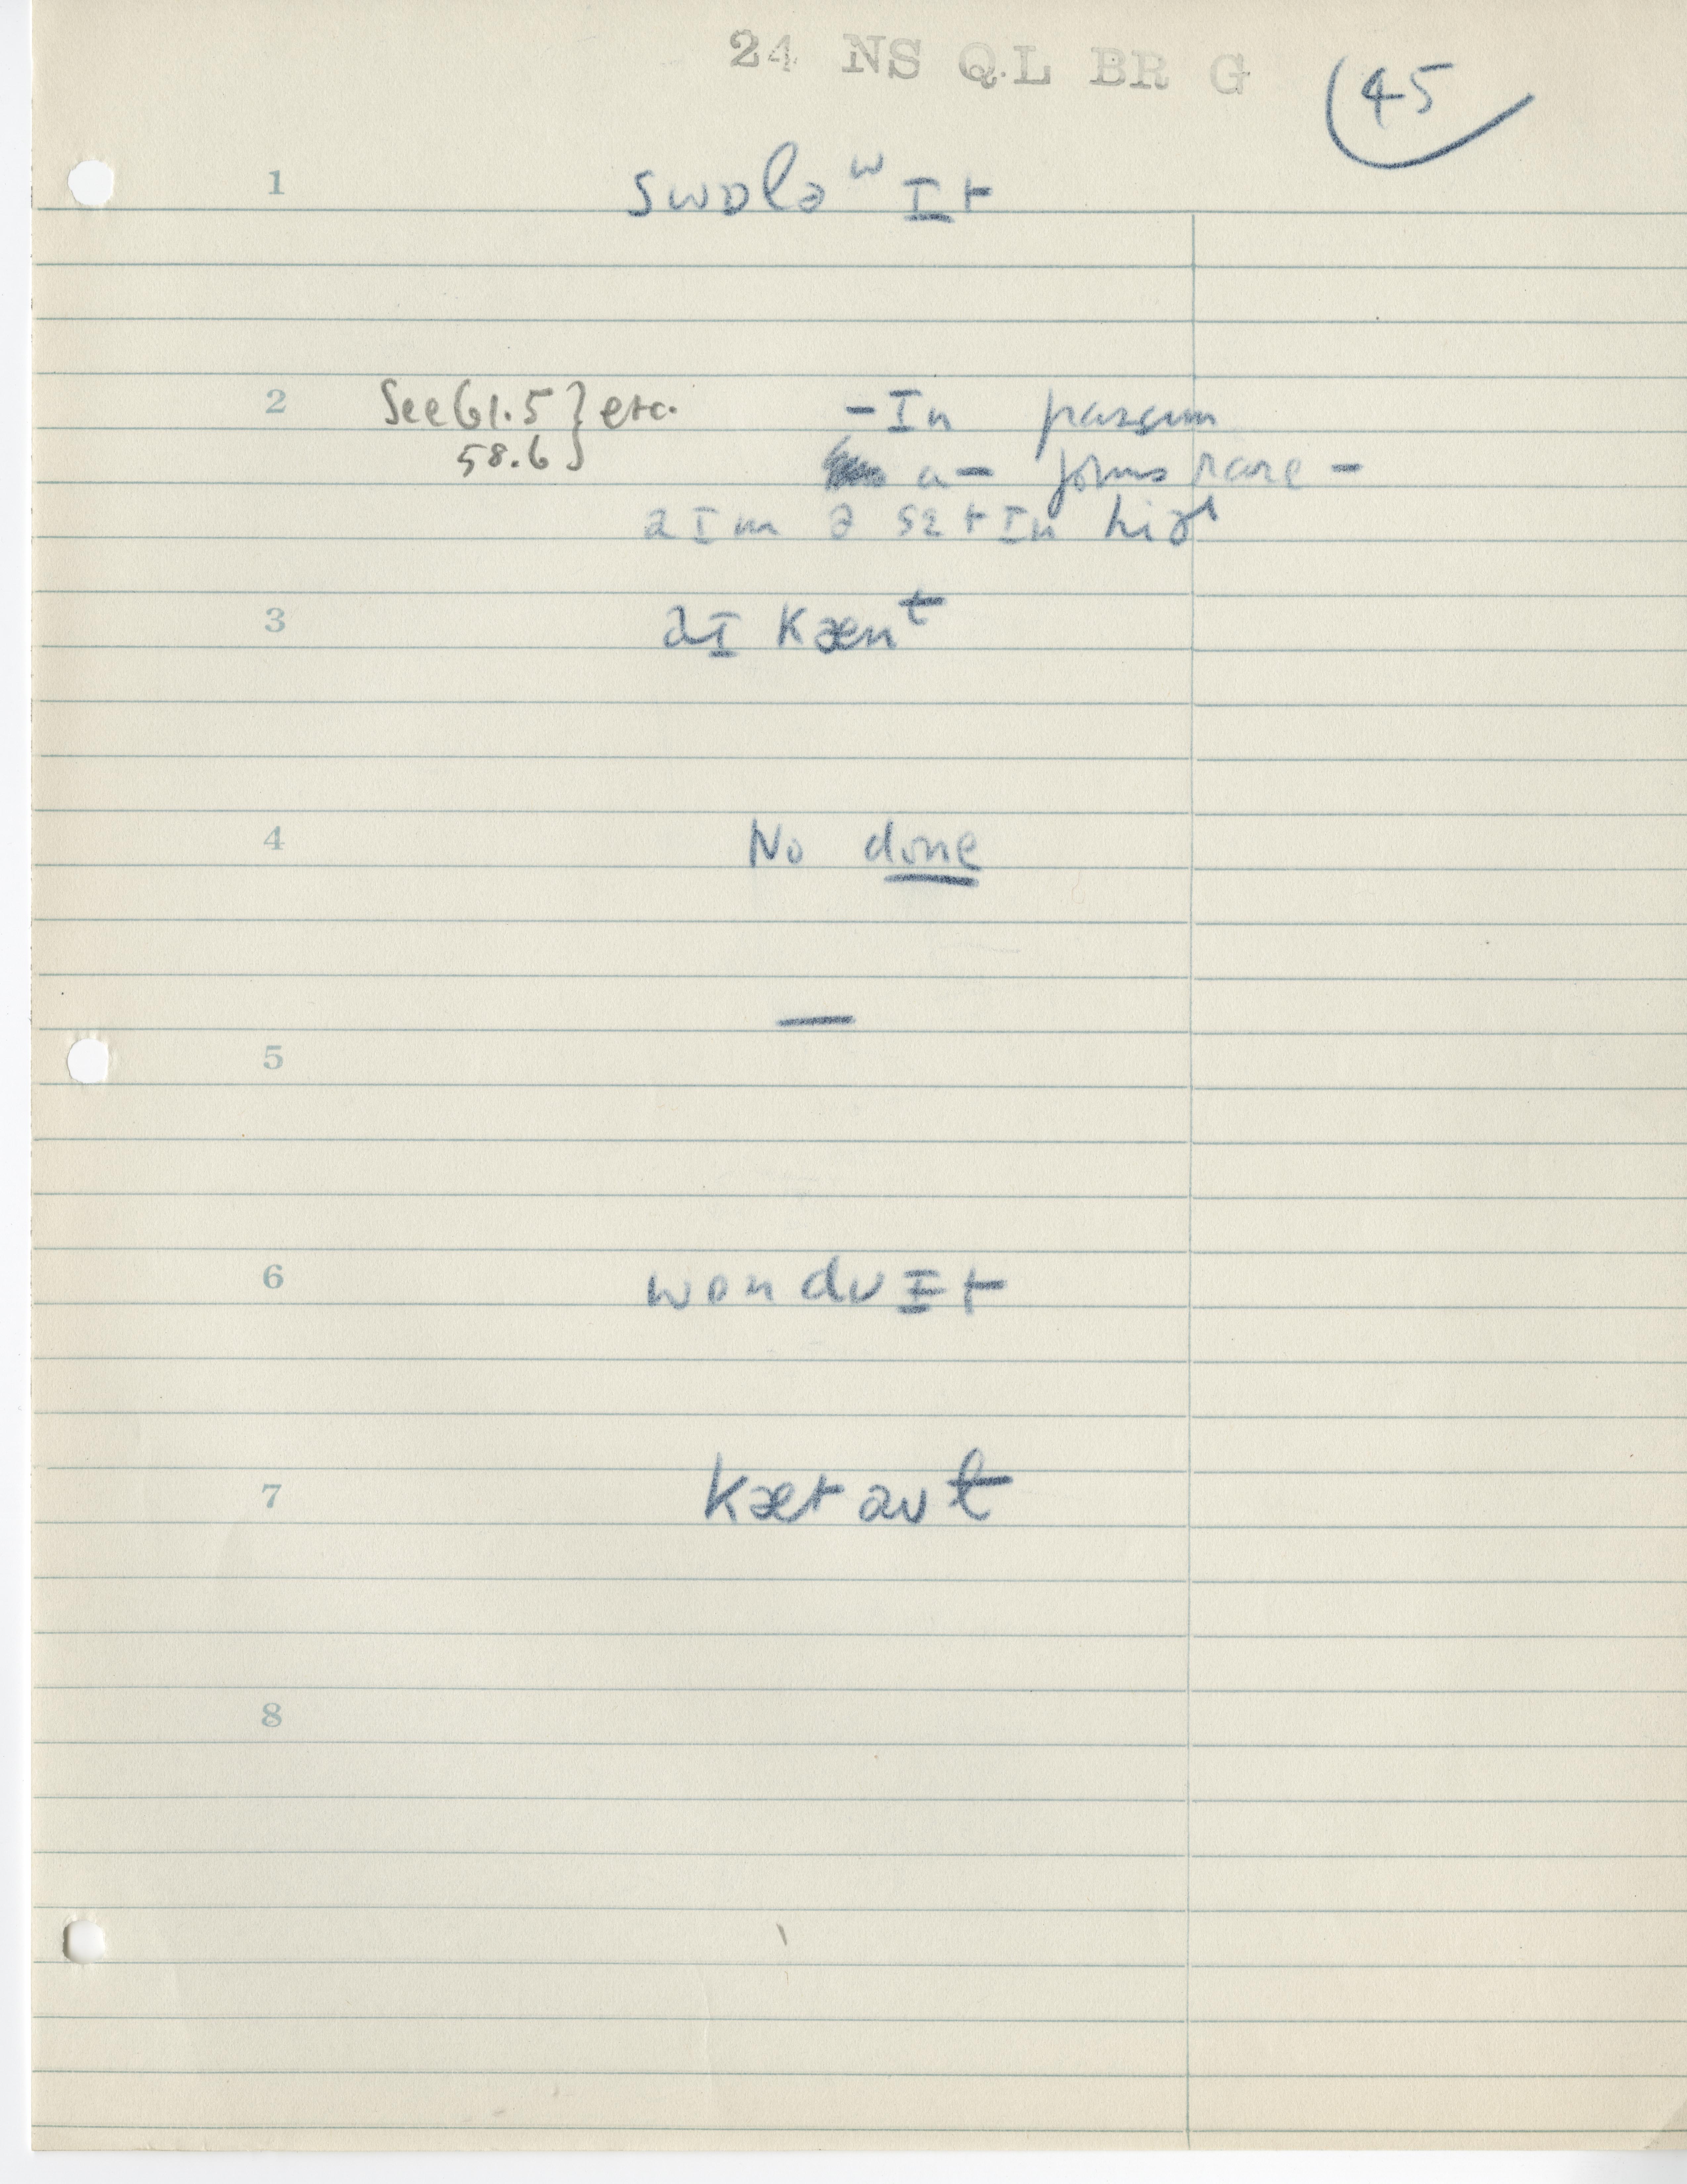 24 NS QL BR G
45
1 swɒlə ʷ ɪt
2 See 61.5 } etc. -ɪn passim
58.6 a- forms rare -
aɪm ə sɛtɪn hiər
3 aɪ kænᵗ
4 No done
—
5
6 wɒn dʊ ɪt
7 kæt aʊt
8